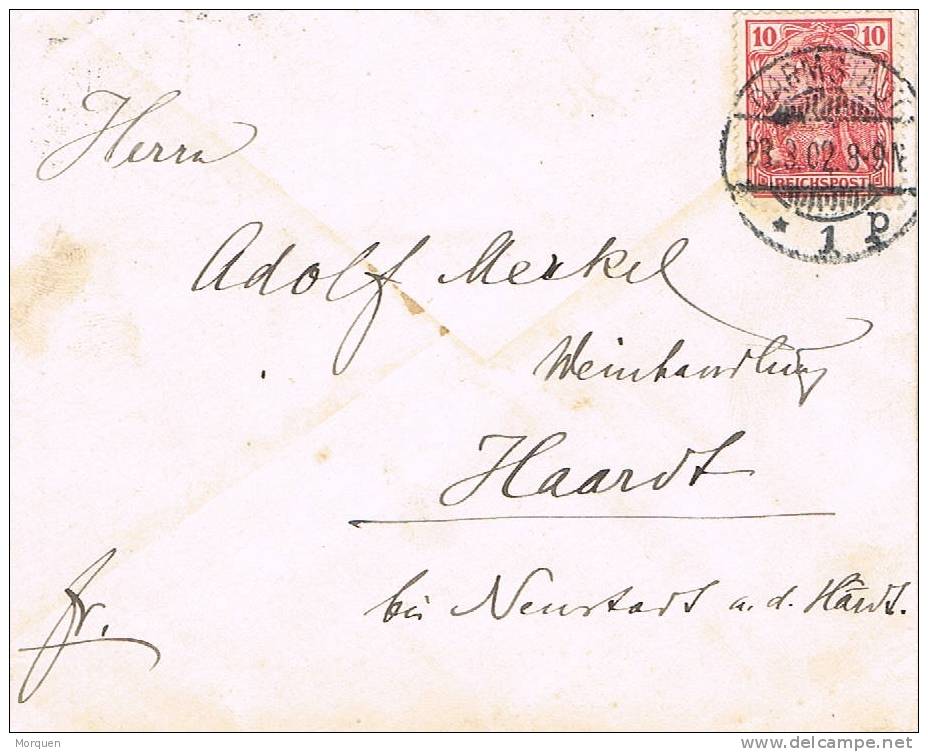 10 10
DARMSTADT
23.3.02 8-9N
REICHSPOST
* 1 P
Herrn
Adolf Merkel
Weinhandlung
Haardt
bei Neustadt a.d. Hardt.
fr.
Morquen
http://www.delcampe.net